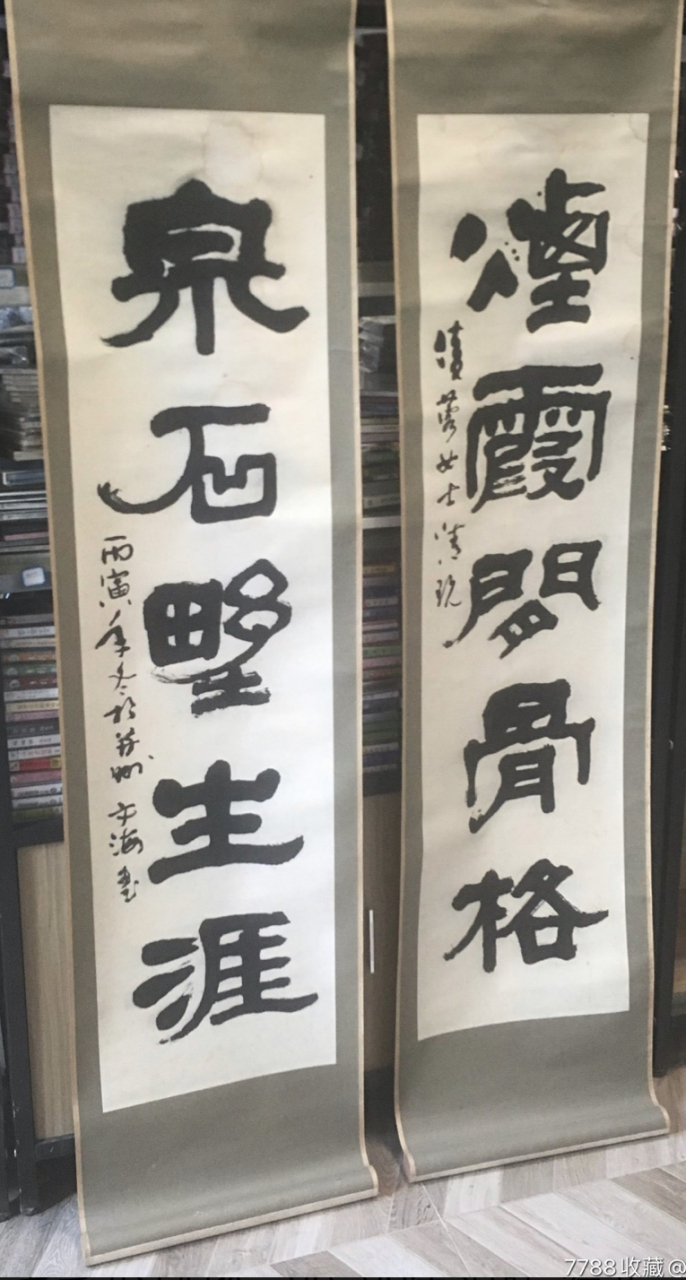 煙霞閒骨格
女士清玩
泉石野生涯
丙寅年冬於蘇州 海書
7788收藏@